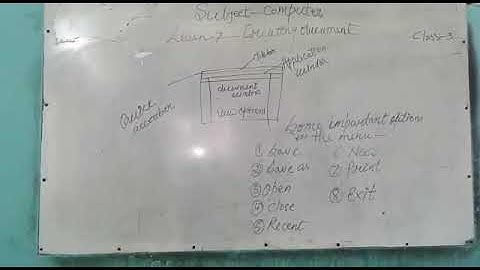 Subject - Computer
Lesson - 7 Creating document
Class - 3
Ribbon
Application
window
document
window
view options
Quick
Some important options
in the menu -
① Save ⑥ New
② Save as ⑦ Print
③ Open ⑧ Exit
④ Close
⑤ Recent